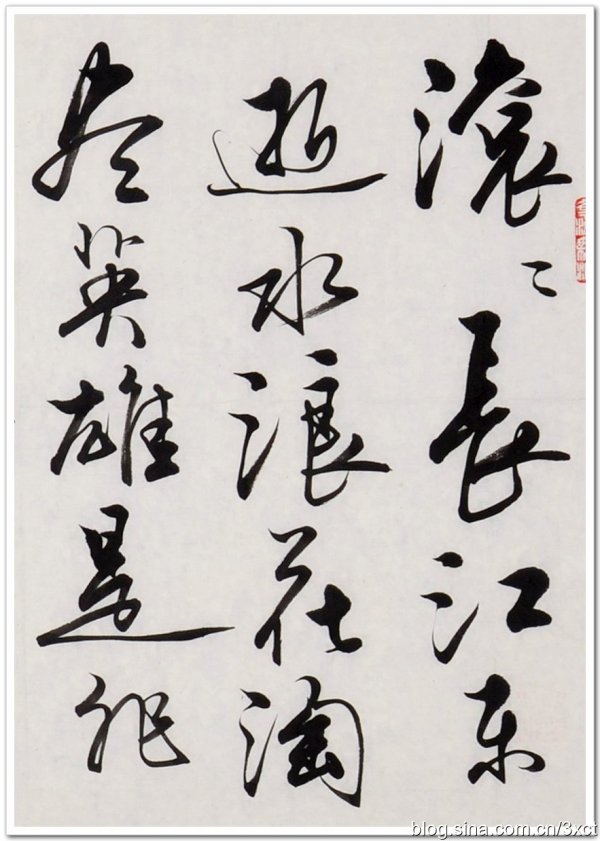 滚〻長江东
逝水浪花淘
尽英雄是非
blog.sina.com.cn/3xct